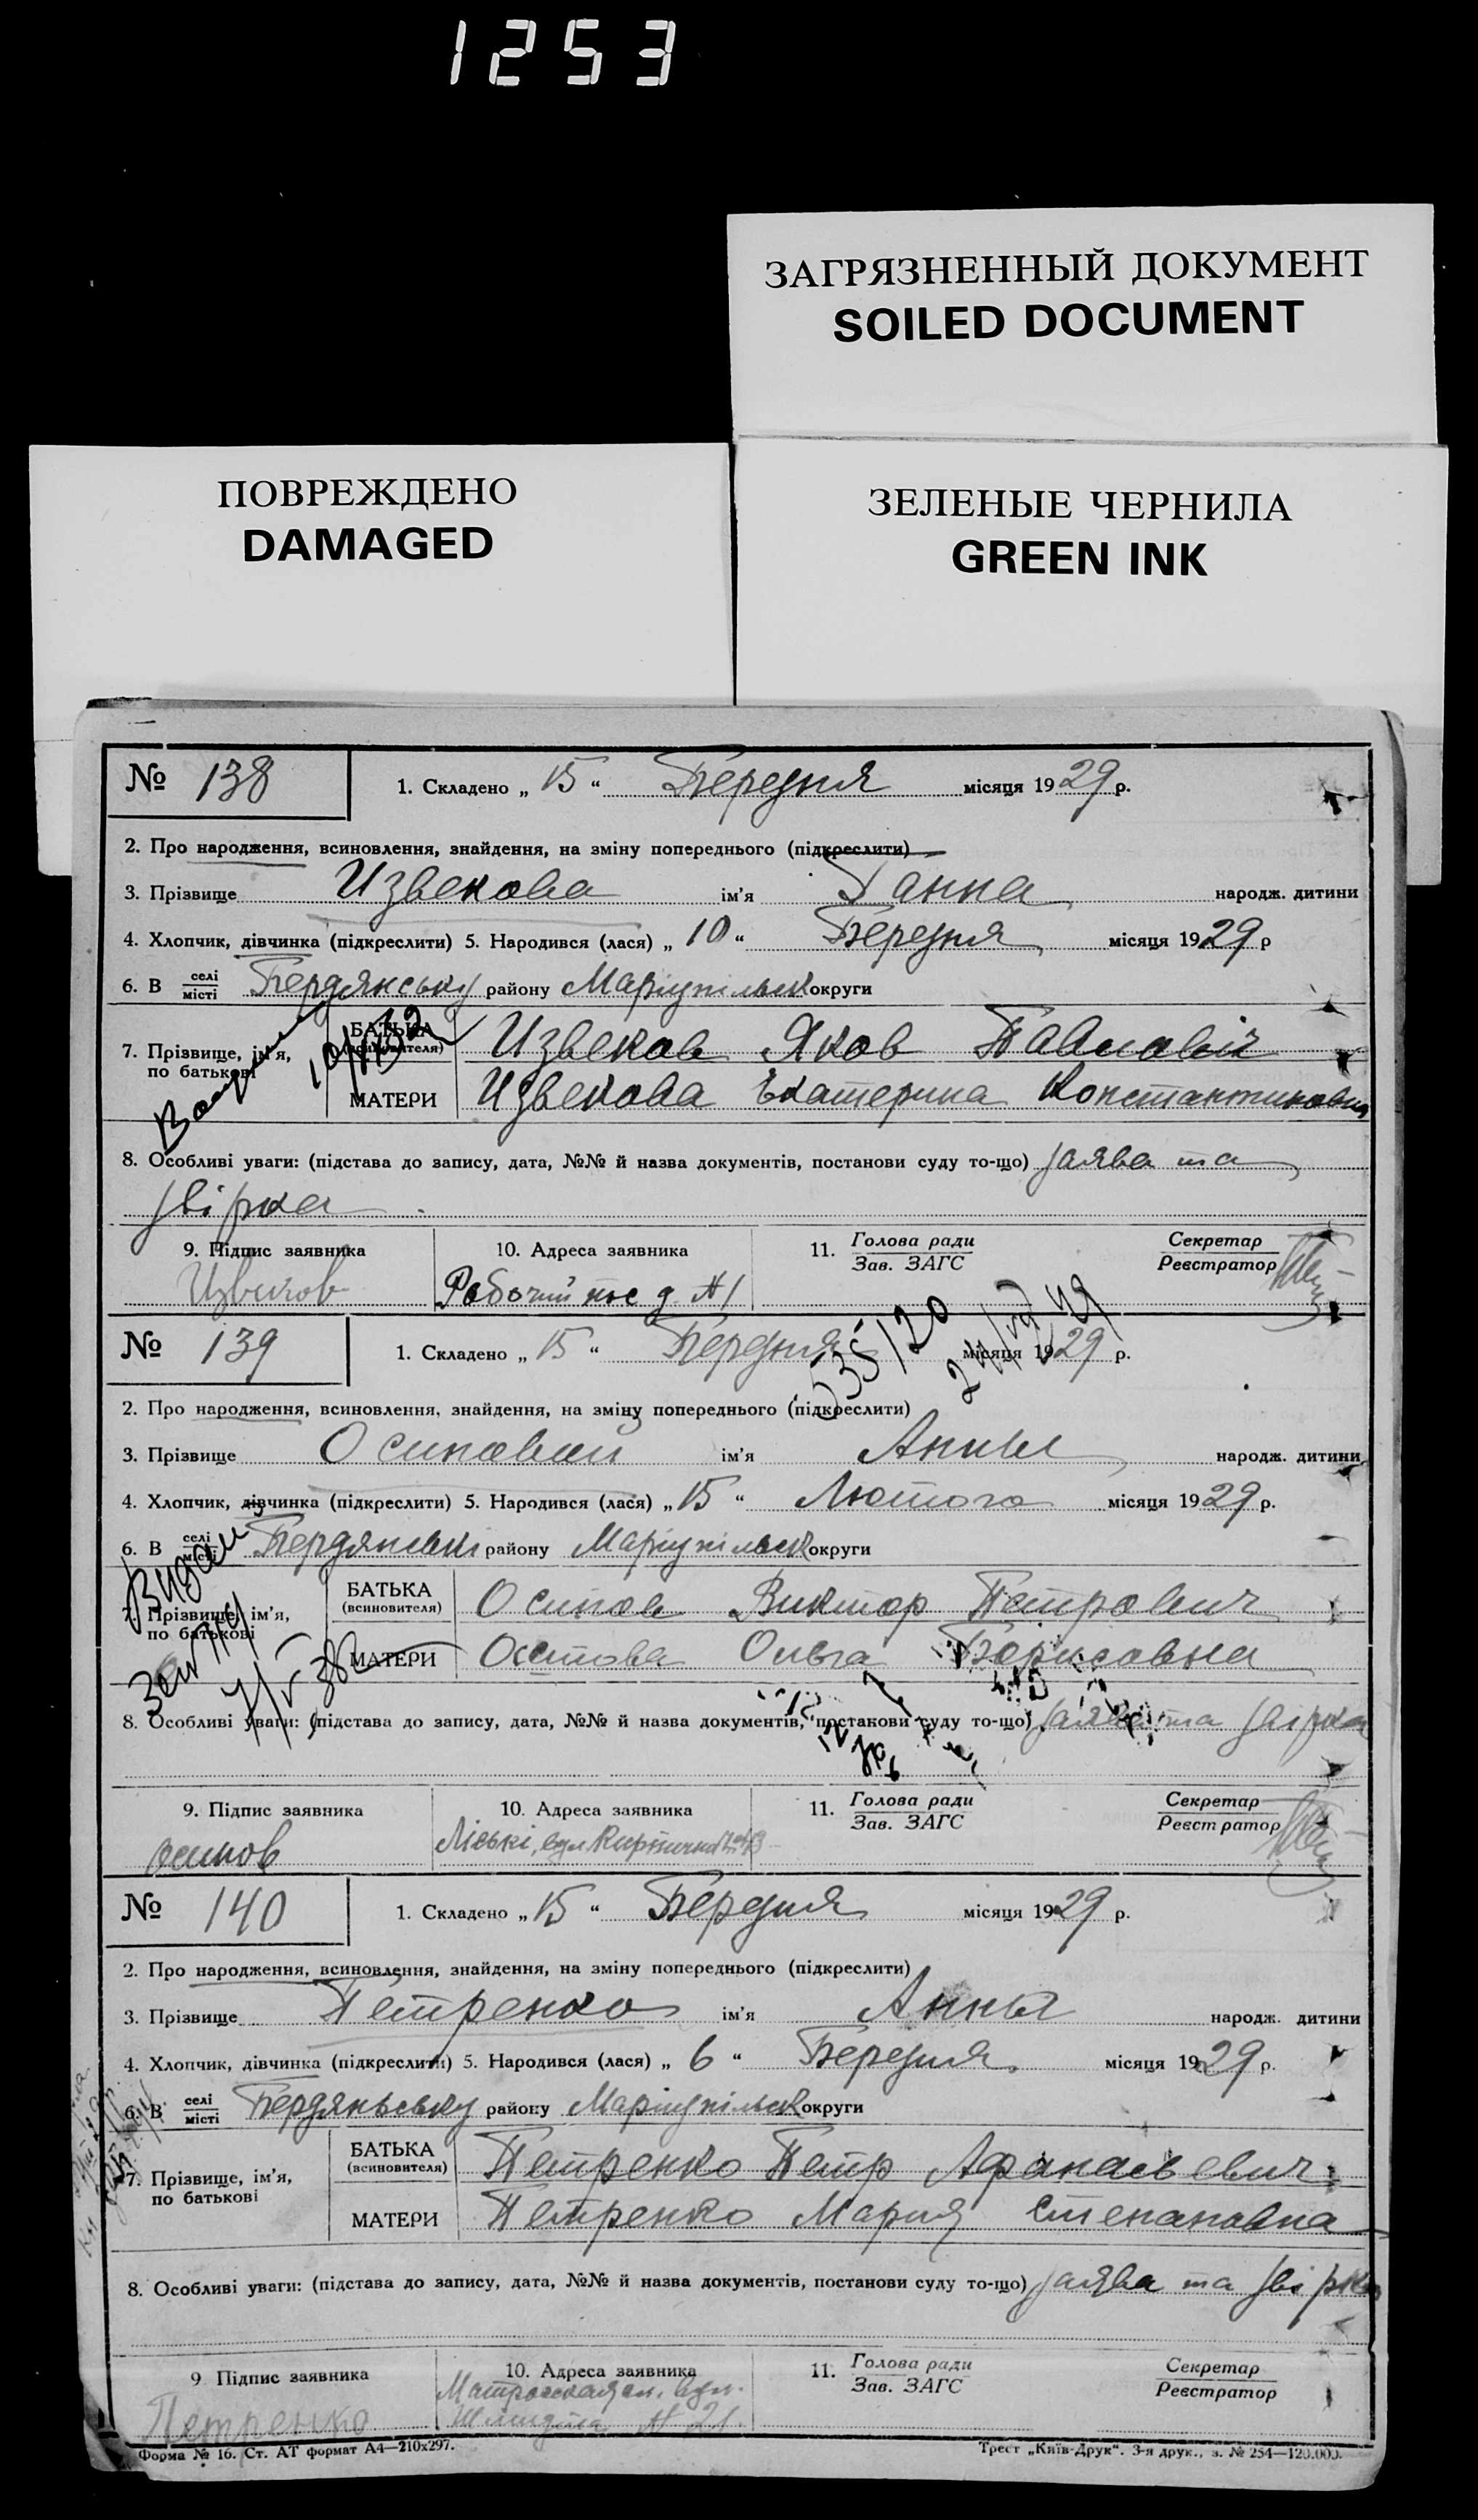 1253
ЗАГРЯЗНЕННЫЙ ДОКУМЕНТ
SOILED DOCUMENT
ПОВРЕЖДЕНО
DAMAGED
ЗЕЛЕНЫЕ ЧЕРНИЛА
GREEN INK
№ 138
1. Складено „ 15 “ Березня місяця 1929 р.
2. Про народження, всиновлення, знайдення, на зміну попереднього (підкреслити)
3. Прізвище Извекова ім’я Ганна народж. дитини
4. Хлопчик, дівчинка (підкреслити) 5. Народився (лася) „ 10 “ Березня місяця 1929 р
6. В селі місті Бердянську району Маріупільськ округи
7. Прізвище, ім’я, по батькові
БАТЬКА (всиновителя) Извеков Яков Павлович
МАТЕРИ Извекова Екатерина Константиновна
8. Особливі уваги: (підстава до запису, дата, №№ й назва документів, постанови суду то-що) заява та
звірка
9. Підпис заявника
10. Адреса заявника
11. Голова ради Зав. ЗАГС
Секретар Реєстратор
Извеков
Рабочий пос д. № 1
№ 139
1. Складено „ 15 “ Березня місяця 1929 р.
535/20
2. Про народження, всиновлення, знайдення, на зміну попереднього (підкреслити)
3. Прізвище Осиповай ім’я Анны народж. дитини
4. Хлопчик, дівчинка (підкреслити) 5. Народився (лася) „ 15 “ Лютого місяця 1929 р.
6. В селі місті Бердянські району Маріупільськ округи
7. Прізвище, ім’я, по батькові
БАТЬКА (всиновителя) Осипов Виктор Петрович
МАТЕРИ Осипова Ольга Борисовна
8. Особливі уваги: (підстава до запису, дата, №№ й назва документів, постанови суду то-що) заява та звірка
9. Підпис заявника
10. Адреса заявника
11. Голова ради Зав. ЗАГС
Секретар Реєстратор
осипов
Ліські, вул
№ 140
1. Складено „ 15 “ Березня місяця 1929 р.
2. Про народження, всиновлення, знайдення, на зміну попереднього (підкреслити)
3. Прізвище Петренко ім’я Анна народж. дитини
4. Хлопчик, дівчинка (підкреслити) 5. Народився (лася) „ 6 “ Березня місяця 1929 р.
6. В селі місті Бердяньську району Маріупільськ округи
7. Прізвище, ім’я, по батькові
БАТЬКА (всиновителя) Петренко Петр Афанасьевич
МАТЕРИ Петренко Мария Степановна
8. Особливі уваги: (підстава до запису, дата, №№ й назва документів, постанови суду то-що) заява та звірка
9 Підпис заявника
10. Адреса заявника
11. Голова ради Зав. ЗАГС
Секретар Реєстратор
Петренко
Шмидта № 21.
Форма № 16. Ст. АТ формат А4—210х297.
Трест „Київ-Друк“. 3-я друк., з. № 254—120.000.